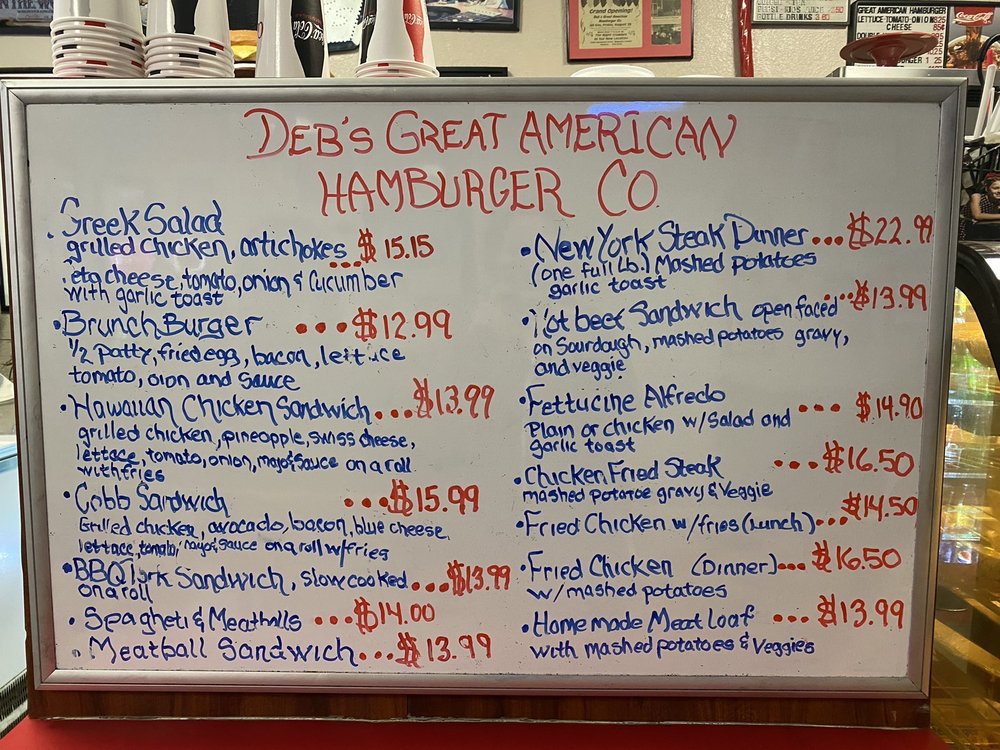 Coca-Cola
Grand Opening!
GREAT AMERICAN HAMBURGER
LETTUCE-TOMATO-ONION
CHEESE
BOTTLE DRINKS
Coca-Cola
DEB'S GREAT AMERICAN
HAMBURGER CO
. Greek Salad
grilled chicken, artichokes ... $15.15
eta cheese, tomato, onion & Cucumber
with garlic toast
• Brunch Burger ... $12.99
1/2 patty, fried egg, bacon, lettuce
tomato, oion and sauce
• Hawaiian Chicken Sandwich ... $13.99
grilled chicken, pineapple, swiss cheese,
lettace, tomato, onion, mayo & sauce on a roll
with fries
• Cobb Sandwich ... $15.99
Grilled chicken, avocado, bacon, blue cheese,
lettace, tomato, mayo & sauce on a roll w/fries
• BBQ Pork Sandwich, slow cooked ... $13.99
on a roll
• Spagheti & Meatballs ... $14.00
• Meatball Sandwich ... $13.99
• New York Steak Dinner ... $22.99
(one full Lb.) Mashed potatoes
garlic toast
• Hot beef Sandwich open faced ... $13.99
on Sourdough, mashed potatoes gravy,
and veggie
• Fettucine Alfredo ... $14.90
Plain or chicken w/Salad and
garlic toast
• Chicken Fried Steak ... $16.50
mashed potatoe gravy & Veggie
• Fried Chicken w/fries (Lunch) ... $14.50
• Fried Chicken (Dinner) ... $16.50
w/mashed potatoes
• Home made Meat Loaf ... $13.99
with mashed potatoes & Veggies